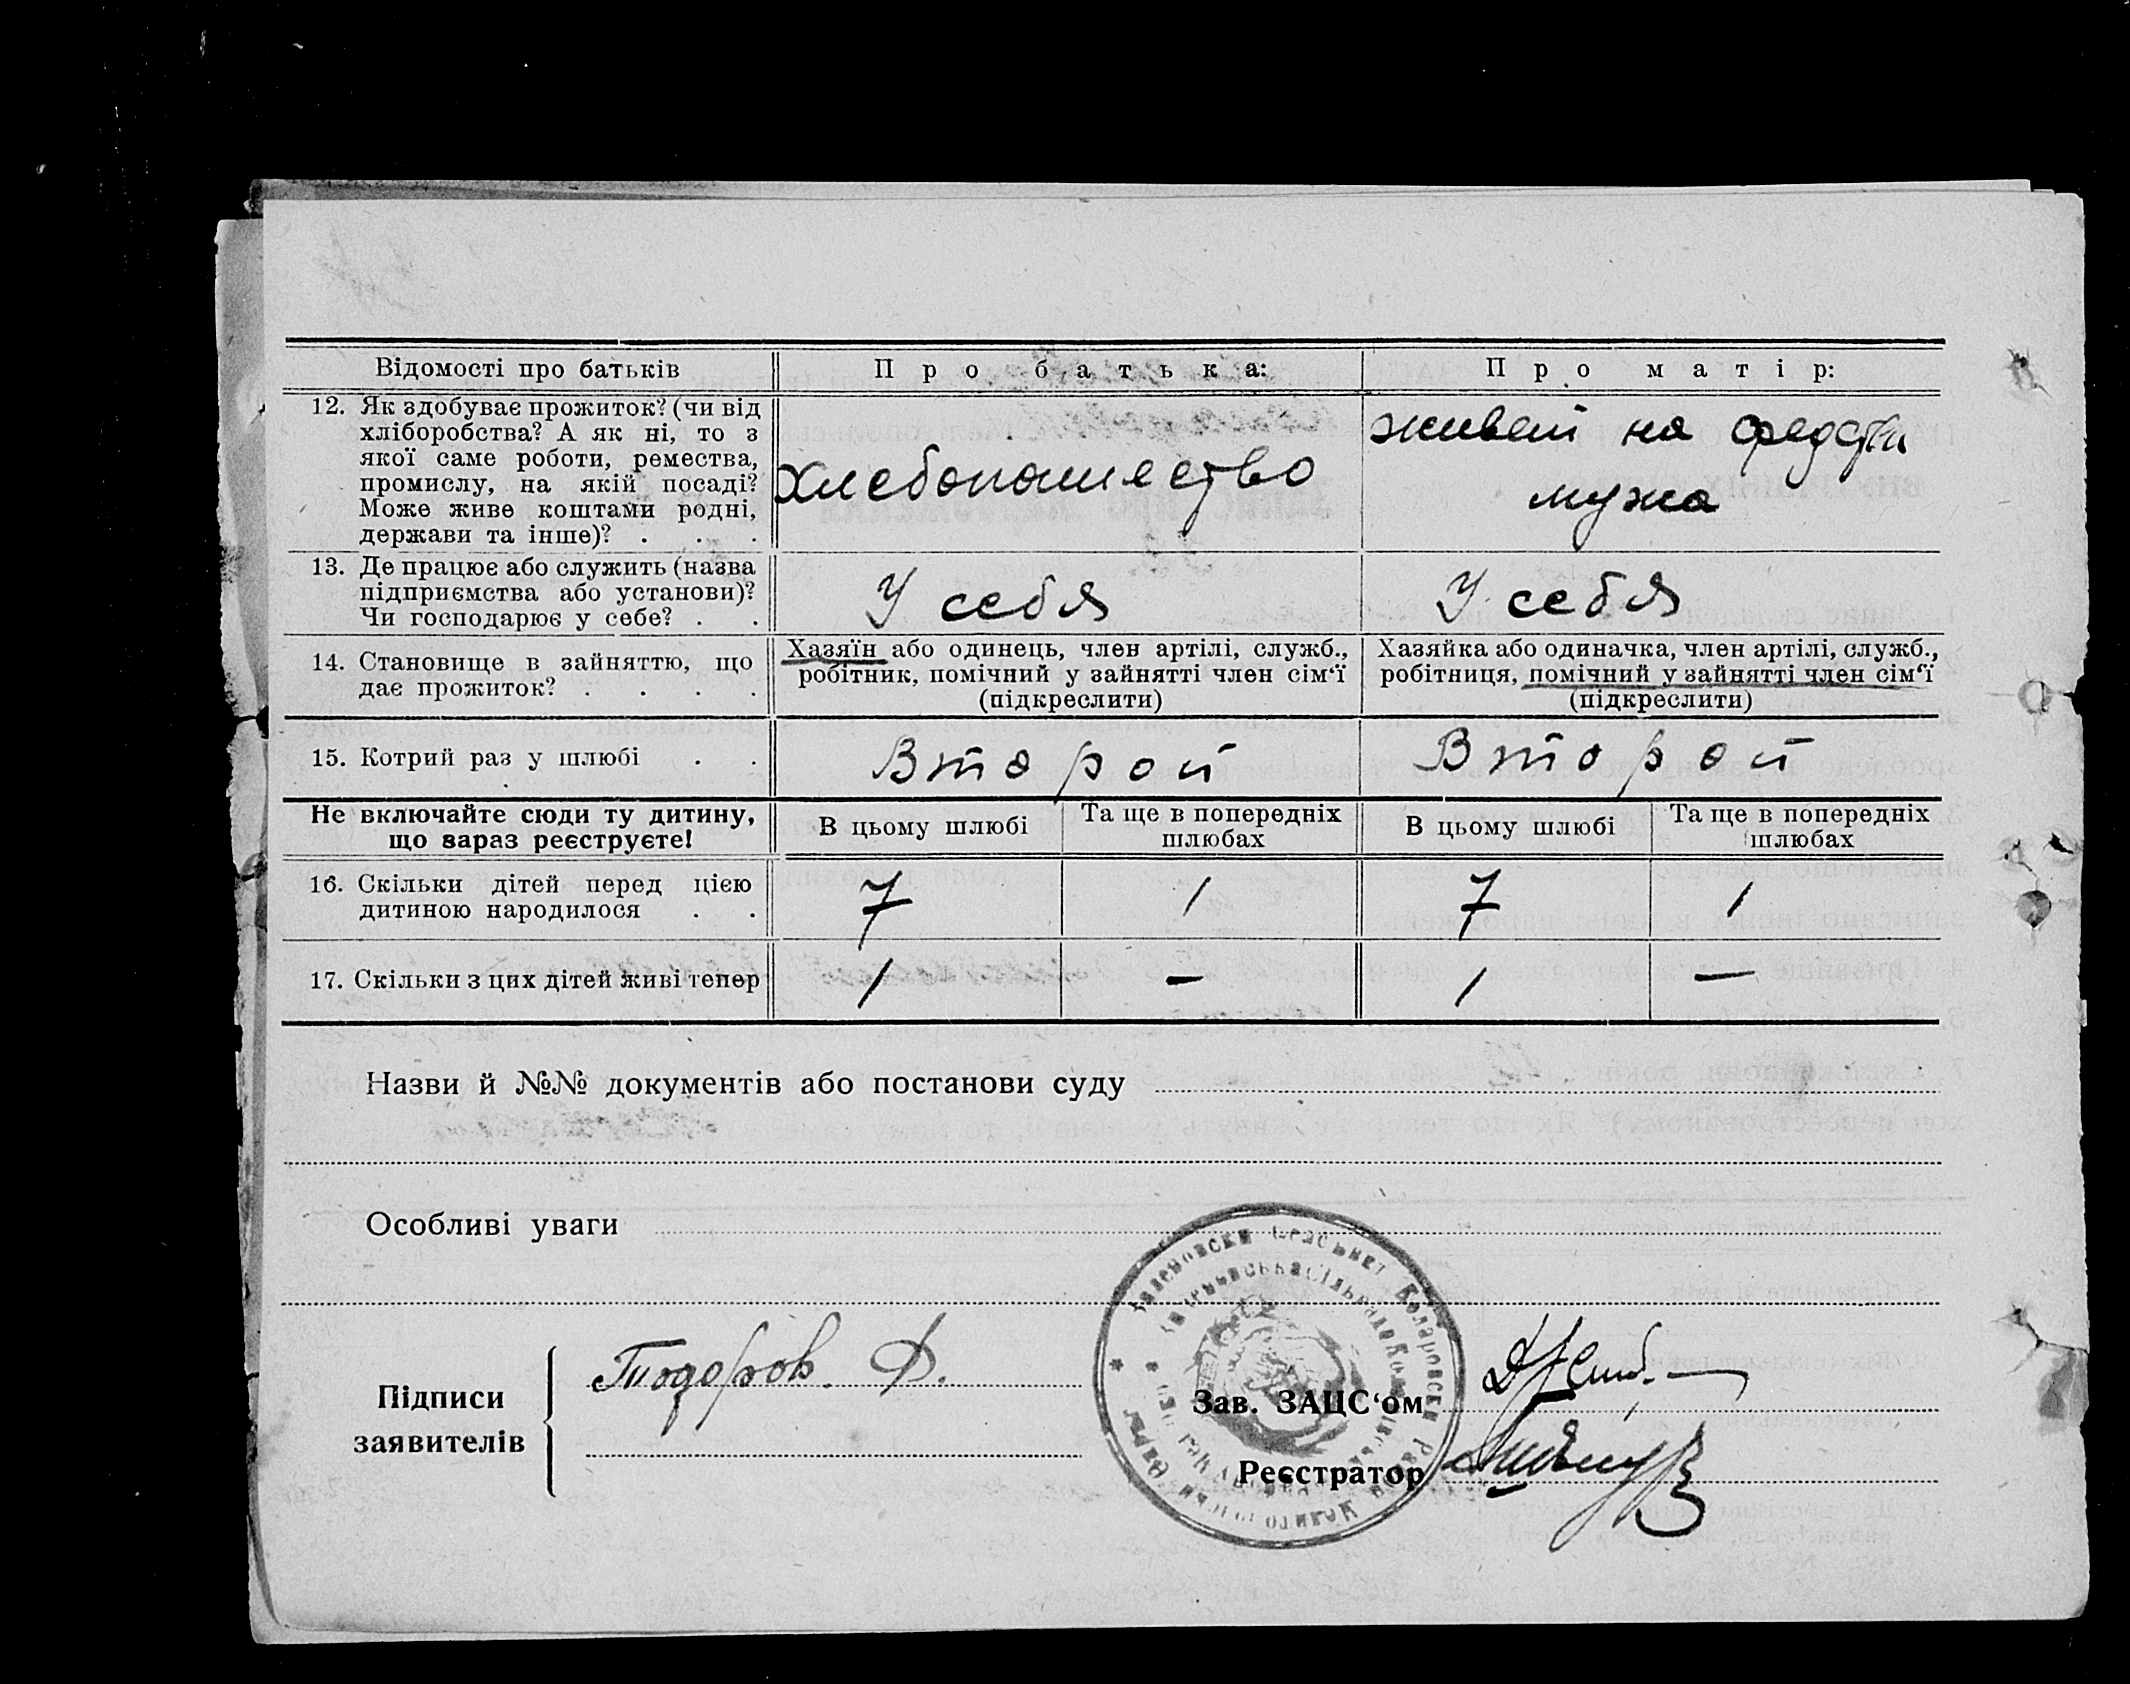 Відомості про батьків
Про батька:
Про матір:
12. Як здобуває прожиток? (чи від
хліборобства? А як ні, то з
якої саме роботи, ремества,
промислу, на якій посаді?
Може живе коштами родні,
держави та інше)? . . .
Хлебопашество
живет на средства
мужа
13. Де працює або служить (назва
підприємства або установи)?
Чи господарює у себе? . .
У себя
У себя
14. Становище в зайняттю, що
дає прожиток? . . . .
Хазяїн або одинець, член артілі, служб.,
робітник, помічний у зайнятті член сім‘ї
(підкреслити)
Хазяйка або одиначка, член артілі, служб.,
робітниця, помічний у зайнятті член сім‘ї
(підкреслити)
15. Котрий раз у шлюбі . .
Второй
Второй
Не включайте сюди ту дитину,
що зараз реєструєте!
В цьому шлюбі
Та ще в попередніх
шлюбах
В цьому шлюбі
Та ще в попередніх
шлюбах
16. Скільки дітей перед цією
дитиною народилося . .
7
1
7
1
17. Скільки з цих дітей живі тепер
1
—
1
—
Назви й №№ документів або постанови суду
Особливі уваги
Підписи
заявителів
Тодоров. Д.
Зав. ЗАЦС‘ом
Реєстратор